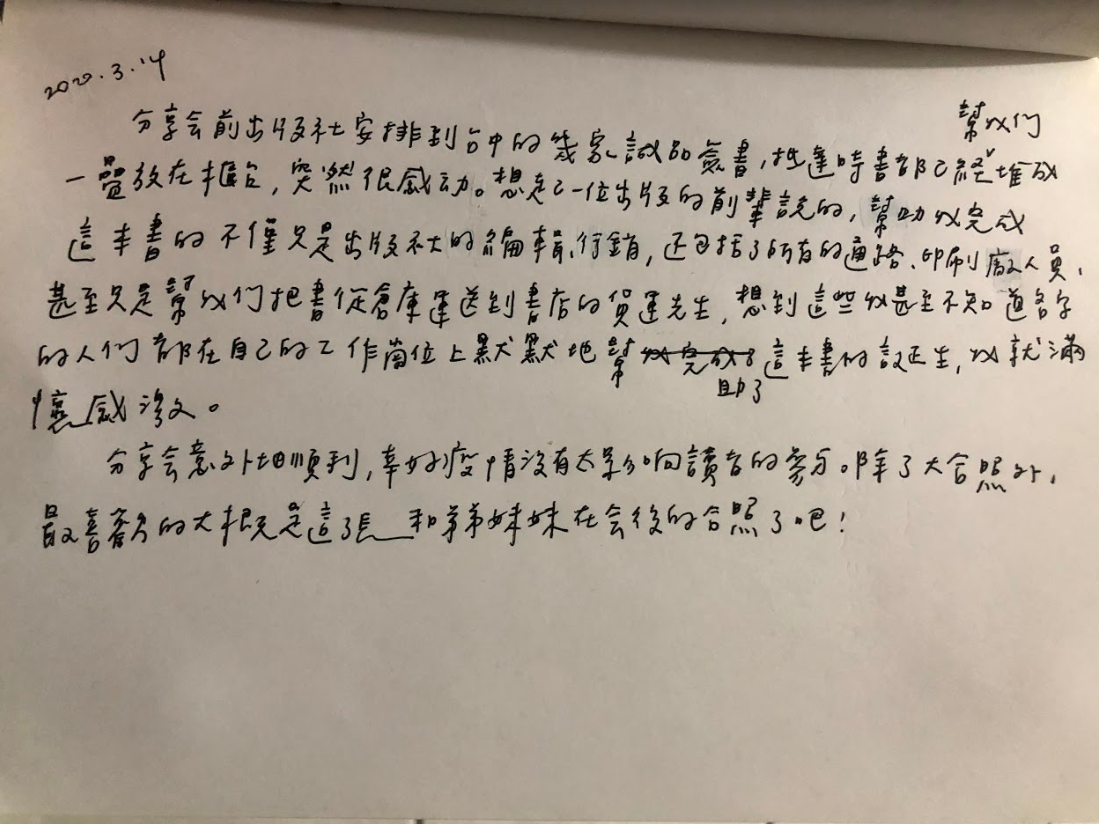 2020.3.14
分享会前出版社安排到台中的幾家誠品簽書,抵達時書都已經幫我們堆成
一疊放在櫃台,突然很感动。想起了一位出版的前輩説的,幫助我完成
這本書的不僅只是出版社的編輯、行銷,还包括了所有的通路、印刷廠人員、
甚至只是幫我們把書從倉庫運送到書店的貨運先生,想到這些我甚至不知道名字
的人們都在自己的工作崗位上默默地幫助了這本書的誕生,我就滿
懷感激。
分享会意外地順利,幸好疫情沒有太影响讀者的參与。除了大合照外,
最喜歡的大概是這張和弟弟妹妹在会後的合照了吧!